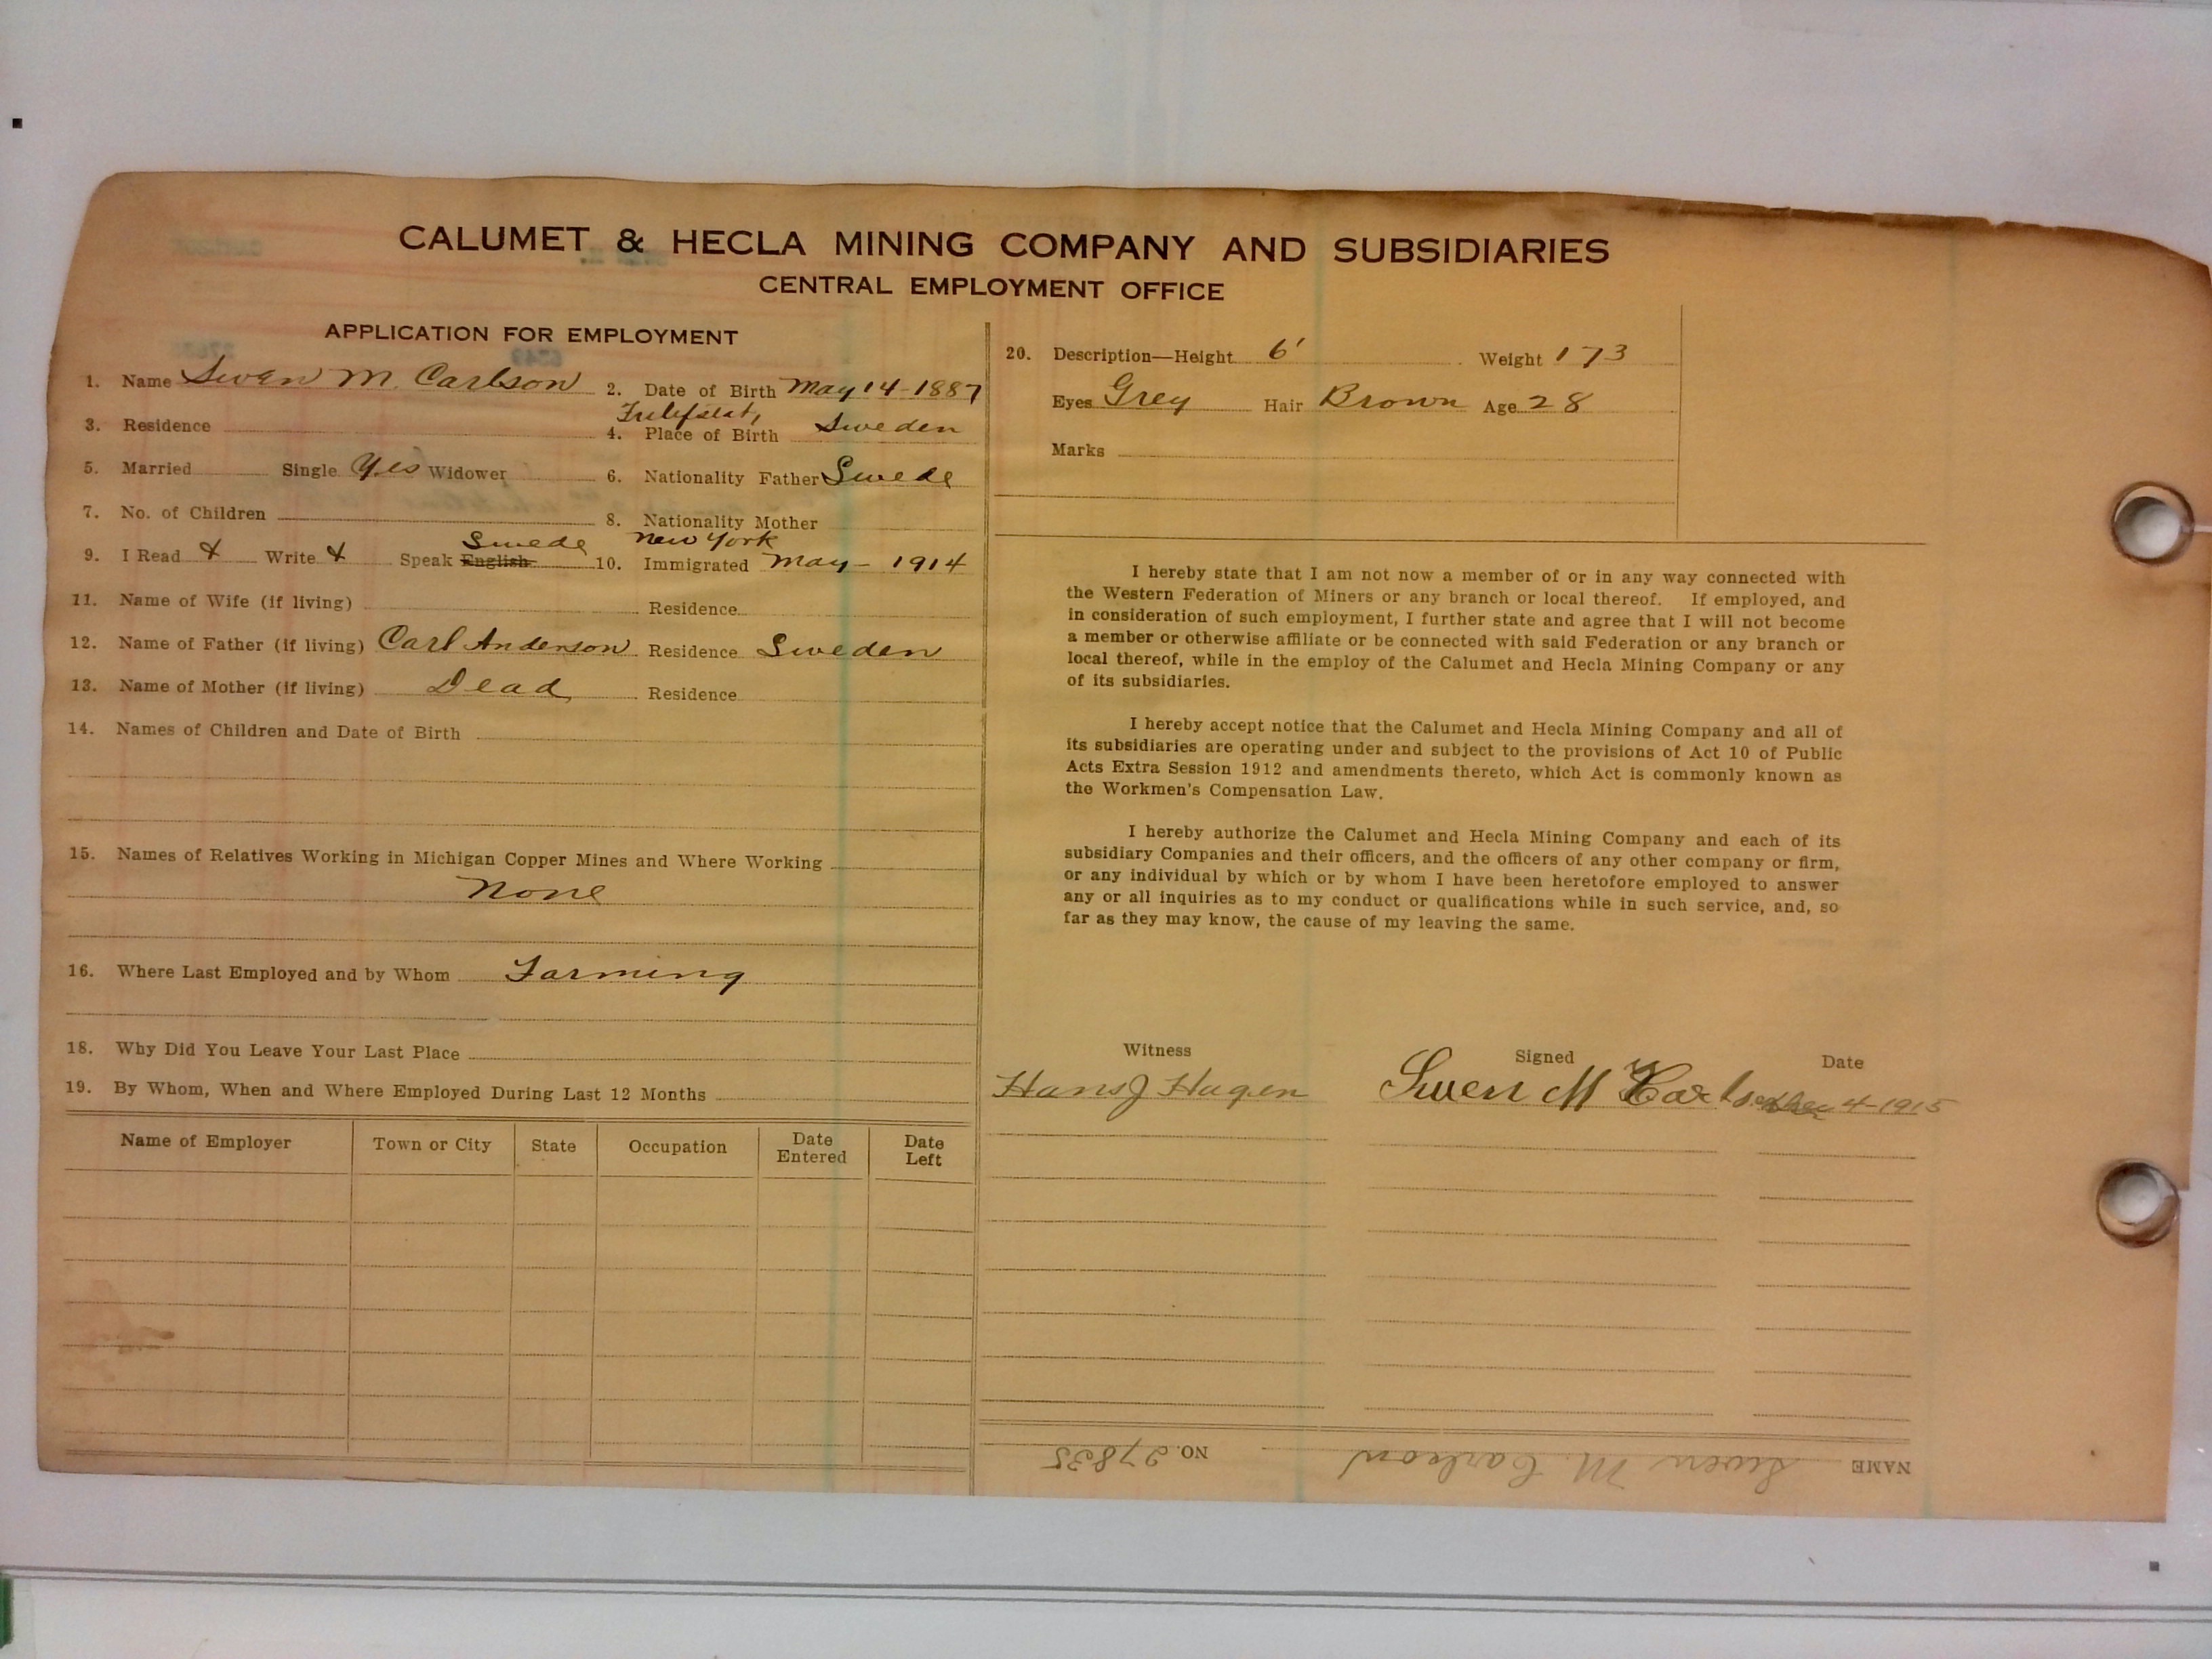 CALUMET & HECLA MINING COMPANY AND SUBSIDIARIES
CENTRAL EMPLOYMENT OFFICE
APPLICATION FOR EMPLOYMENT
1. Name Swen M. Carlson 2. Date of Birth May 14-1887
3. Residence 4. Place of Birth Sweden
5. Married Single Yes Widower 6. Nationality Father Swede
7. No. of Children 8. Nationality Mother
Swede New York
9. I Read Write Speak English 10. Immigrated May - 1914
11. Name of Wife (if living) Residence
12. Name of Father (if living) Carl Anderson Residence Sweden
13. Name of Mother (if living) Dead Residence
14. Names of Children and Date of Birth
15. Names of Relatives Working in Michigan Copper Mines and Where Working
None
16. Where Last Employed and by Whom Farming
18. Why Did You Leave Your Last Place
19. By Whom, When and Where Employed During Last 12 Months
Name of Employer Town or City State Occupation Date Entered Date Left
20. Description—Height 6' Weight 173
Eyes Grey Hair Brown Age 28
Marks
I hereby state that I am not now a member of or in any way connected with
the Western Federation of Miners or any branch or local thereof. If employed, and
in consideration of such employment, I further state and agree that I will not become
a member or otherwise affiliate or be connected with said Federation or any branch or
local thereof, while in the employ of the Calumet and Hecla Mining Company or any
of its subsidiaries.
I hereby accept notice that the Calumet and Hecla Mining Company and all of
its subsidiaries are operating under and subject to the provisions of Act 10 of Public
Acts Extra Session 1912 and amendments thereto, which Act is commonly known as
the Workmen's Compensation Law.
I hereby authorize the Calumet and Hecla Mining Company and each of its
subsidiary Companies and their officers, and the officers of any other company or firm,
or any individual by which or by whom I have been heretofore employed to answer
any or all inquiries as to my conduct or qualifications while in such service, and, so
far as they may know, the cause of my leaving the same.
Witness Signed Date
Hans J Hagen Swen M Carlson 4-1915
NAME Swen M. Carlson NO. 27835